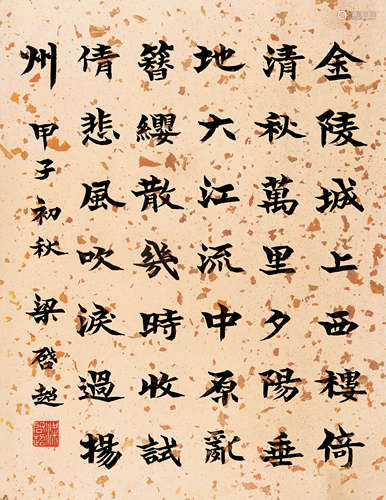 金陵城上西樓倚
清秋萬里夕陽垂
地大江流中原亂
簪纓散幾時收試
倩悲風吹淚過揚
州甲子初秋梁啓超